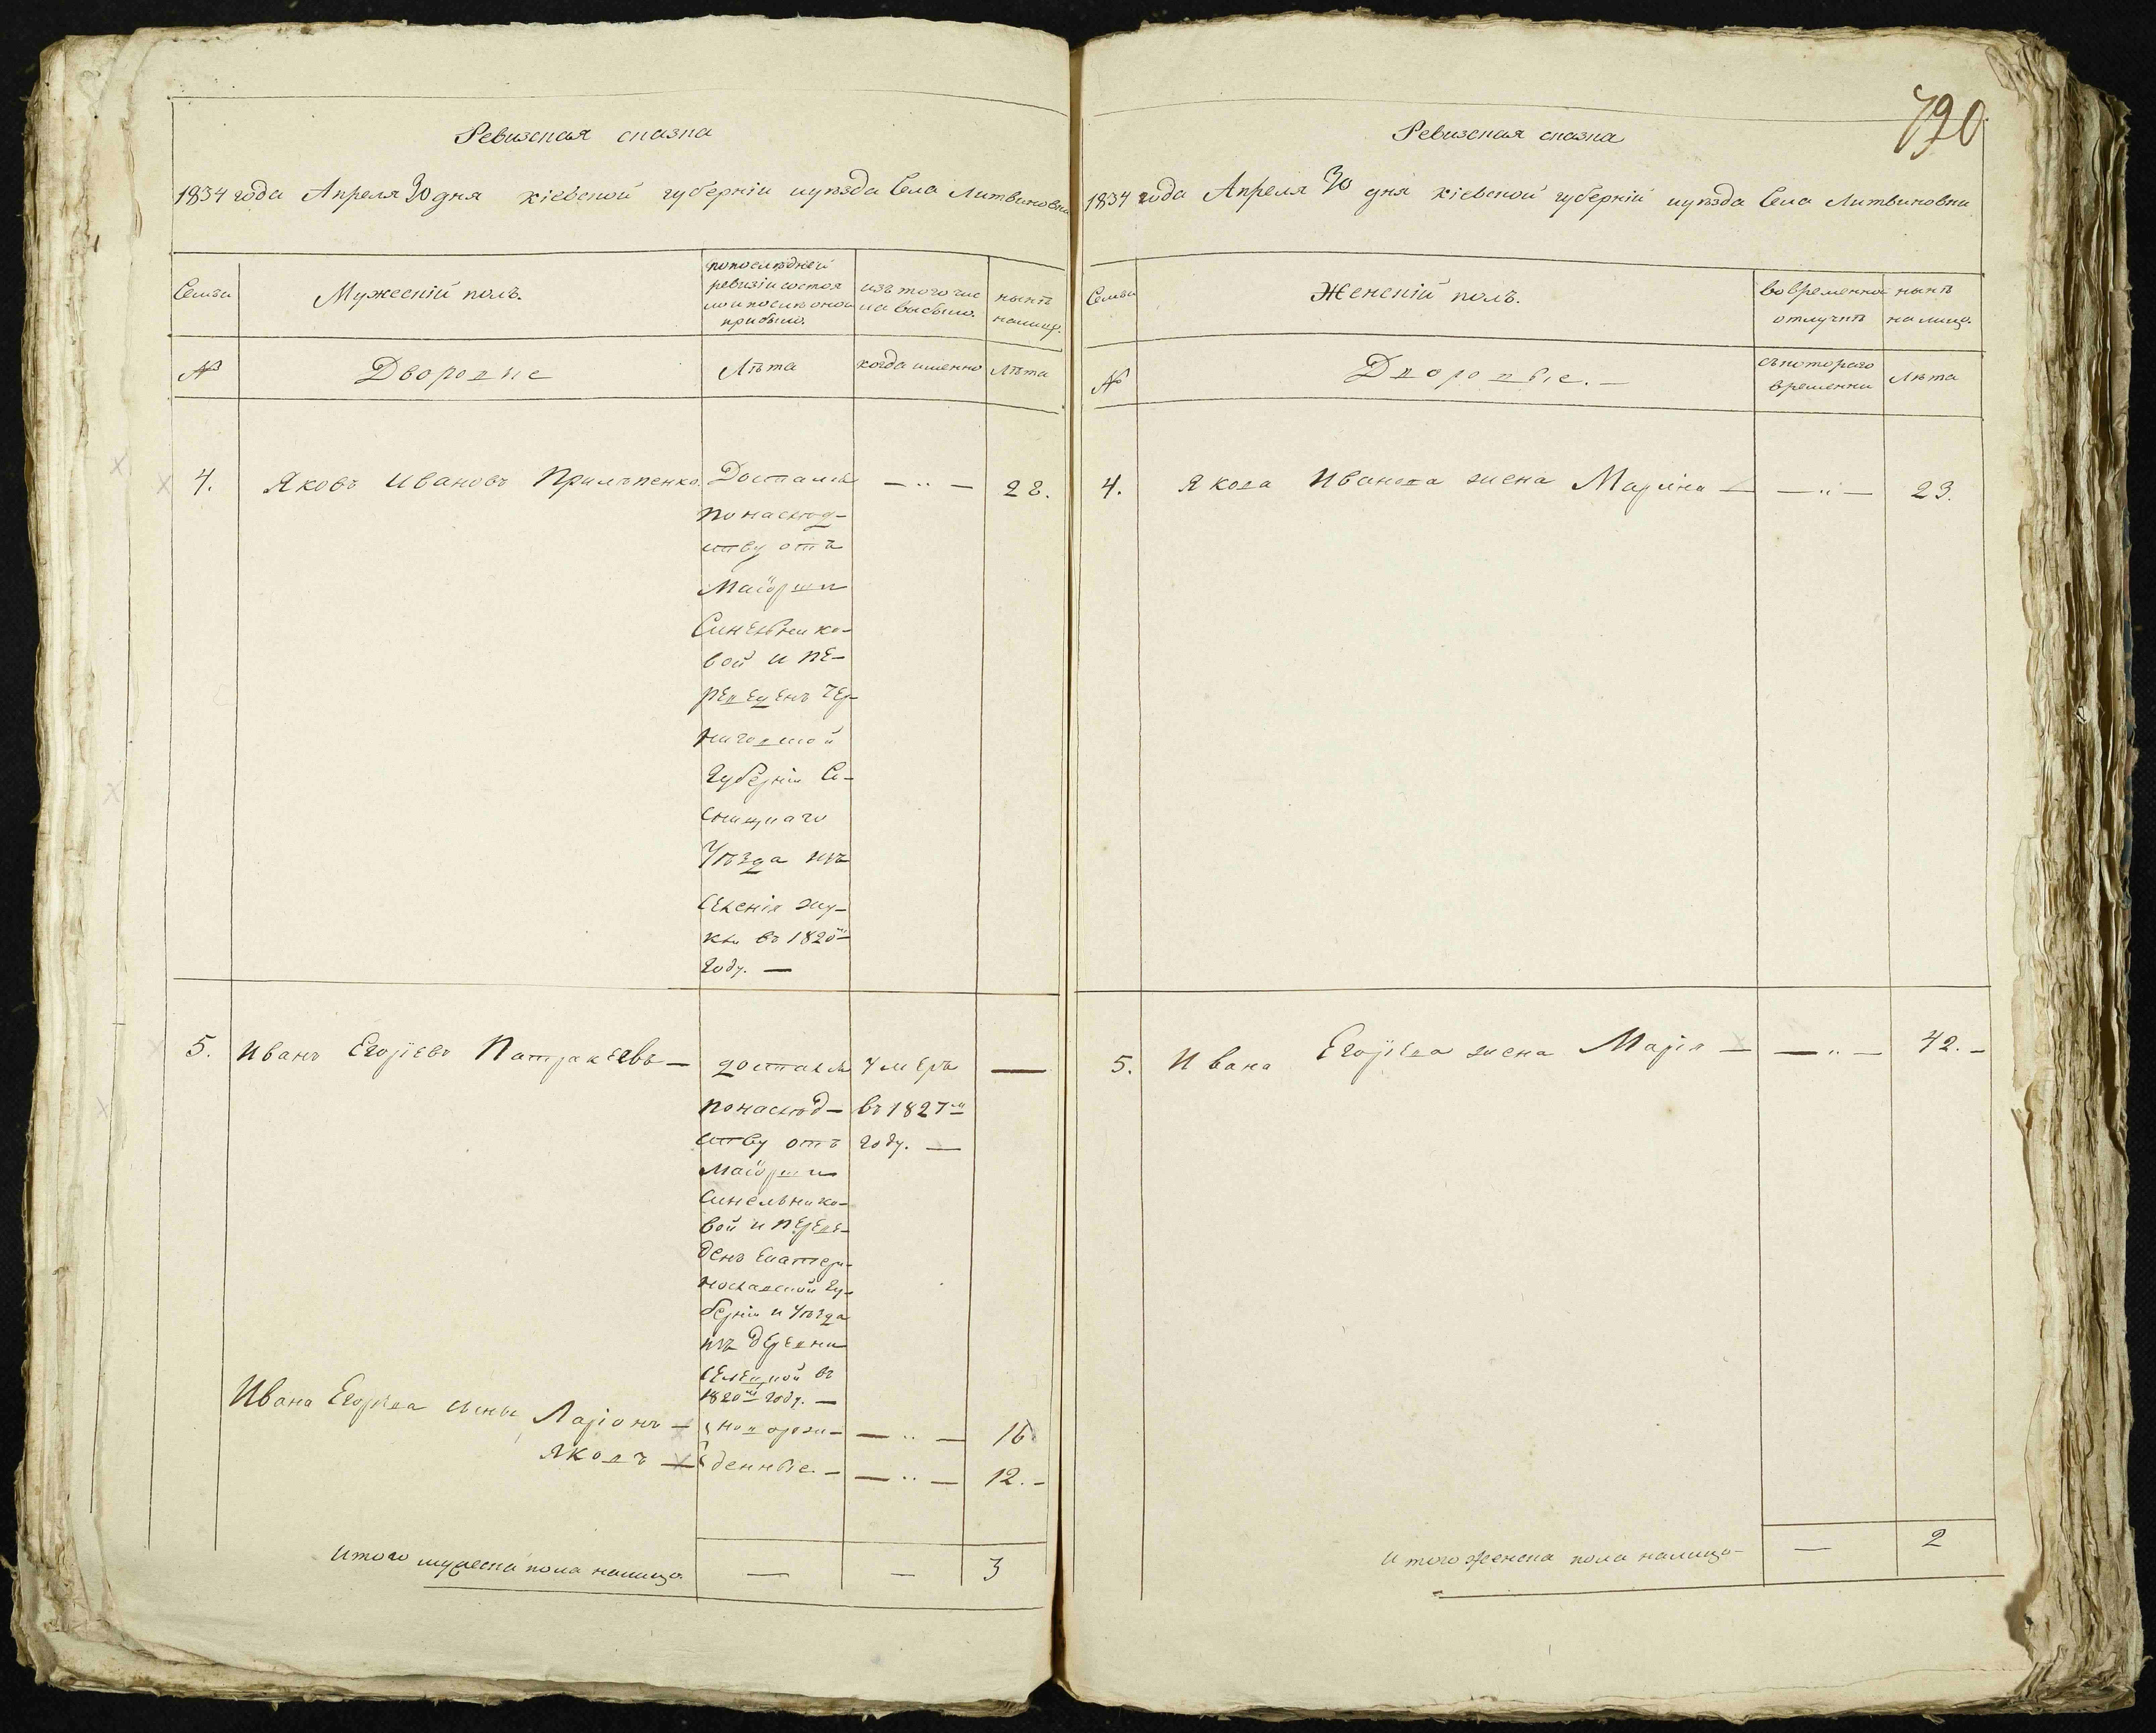 Ревизская сказка
1834 года Апреля 30 дня Кіевской губерніи и уезда Села Литвиновки
Семьи
Мужескій полъ.
по последней
ревизіи состоя
ло и после оной
прибыло.
изъ того чис
ла выбыло.
ныне
налицо.
№
Дворовые
Лѣта
когда именно
Лѣта
4.
Яковъ Ивановъ Прилѣпенко
Достался
по наслѣд-
ству отъ
Маіорши
Синельнико-
вой и пе-
реведенъ Чер-
ниговской
Губерніи Со-
сницкаго
Уѣзда изъ
Селенія Жу-
кли въ 1820м
году. —
— „ —
28.
5.
Иванъ Егоріевъ Патракѣевъ —
достался
по наслѣд-
ству отъ
Маіорши
Синельнико-
вой и переве-
денъ Екатери-
нославской Гу-
берніи и Уѣзда
изъ деревни
въ
1820м году. —
Умеръ
въ 1827м
году. —
—
Ивана Егоріева сыны Ларіонъ —
новорож-
— „ —
16
Яковъ —
денные. —
— „ —
12. -
Итого мужеска пола налицо
—
—
3
790
Ревизская сказка
1834 года Апреля 30 дня Кіевской губерніи и уезда Села Литвиновки
Семьи
Женскій полъ.
во временной
отлучкѣ
ныне
налицо.
№
Дворовые. —
съ котораго
временни
Лѣта
4.
Якова Иванова жена Марина —
— „ —
23.
5.
Ивана Егоріева жена Марія —
— „ —
42. -
Итого женска пола налицо —
—
2